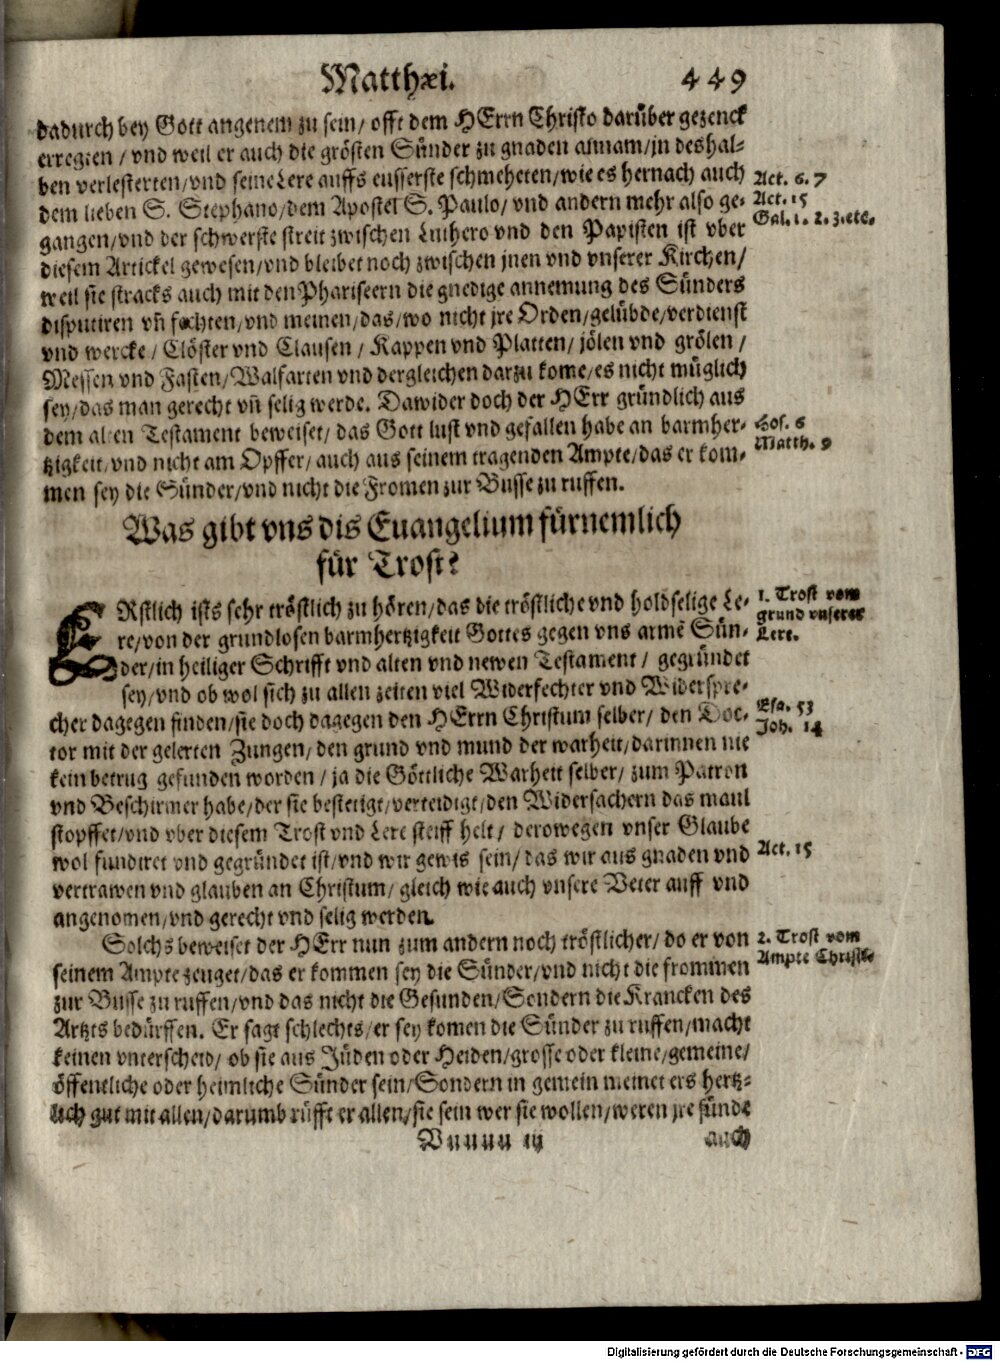 Matthæi. 449
dadurch bey Gott angenem zu sein/ offt dem HErrn Christo darüber gezenck
erregten / vnd weil er auch die grösten Sünder zu gnaden annam/ jn deshal-
ben verlesterten/ vnd seine Lere auffs eusserste schmeheten/ wie es hernach auch
Act. 6. 7
dem lieben S. Stephano/ dem Apostel S. Paulo/ vnd andern mehr also ge-
Act. 15
gangen/ vnd der schwerste streit zwischen Luthero vnd den Papisten ist vber
Gal. 1. 2. 3. etc.
diesem Artickel gewesen/ vnd bleibet noch zwischen jnen vnd vnserer Kirchen/
weil sie stracks auch mit den Phariseern die gnedige annemung des Sünders
disputiren vn̄ fechten/ vnd meinen/ das/ wo nicht jre Orden/ gelübde/ verdienst
vnd wercke / Clöster vnd Clausen / Kappen vnd Platten/ jölen vnd grölen /
Messen vnd Fasten/ Walfarten vnd dergleichen darzu kome/ es nicht müglich
sey/ das man gerecht vn̄ selig werde. Dawider doch der HErr gründlich aus
dem alten Testament beweiset/ das Gott lust vnd gefallen habe an barmher-
Hos. 6
Matth. 9
tzigkeit/ vnd nicht am Opffer/ auch aus seinem tragenden Ampte/ das er kom-
men sey die Sünder/ vnd nicht die Fromen zur Busse zu ruffen.
Was gibt vns dis Euangelium fürnemlich
für Trost?
ERstlich ists sehr tröstlich zu hören/ das die tröstliche vnd holdselige Le-
1. Trost vom
grund vnserer
Lere.
re/ von der grundlosen barmhertzigkeit Gottes gegen vns armē Sün-
der/ in heiliger Schrifft vnd alten vnd newen Testament / gegründet
sey/ vnd ob wol sich zu allen zeiten viel Widerfechter vnd Widerspre-
cher dagegen finden/ sie doch dagegen den HErrn Christum selber/ den Doc-
Esa. 53
Joh. 14
tor mit der gelerten Zungen/ den grund vnd mund der warheit/ darinnen nie
kein betrug gefunden worden / ja die Göttliche Warheit selber/ zum Patron
vnd Beschirmer habe/ der sie bestetigt/ verteidigt/ den Widersachern das maul
stopffet/ vnd vber diesem Trost vnd Lere steiff helt/ derowegen vnser Glaube
wol fundiret vnd gegründet ist/ vnd wir gewis sein/ das wir aus gnaden vnd
Act. 15
vertrawen vnd glauben an Christum/ gleich wie auch vnsere Veter auff vnd
angenomen/ vnd gerecht vnd selig werden.
Solchs beweiset der HErr nun zum andern noch tröstlicher/ do er von
2. Trost vom
Ampte Christi
seinem Ampte zeuget/ das er kommen sey die Sünder/ vnd nicht die frommen
zur Busse zu ruffen/ vnd das nicht die Gesunden/ Sondern die Krancken des
Artzts bedürffen. Er sagt schlechts/ er sey komen die Sünder zu ruffen/ macht
keinen vnterscheid/ ob sie aus Jüden oder Heiden/ grosse oder kleine/ gemeine/
öffentliche oder heimliche Sünder sein/ Sondern in gemein meinet ers hertz-
lich gut mit allen/ darumb rüfft er allen/ sie sein wer sie wollen/ weren jre sünde
Vuuuu iij auch
Digitalisierung gefördert durch die Deutsche Forschungsgemeinschaft - DFG